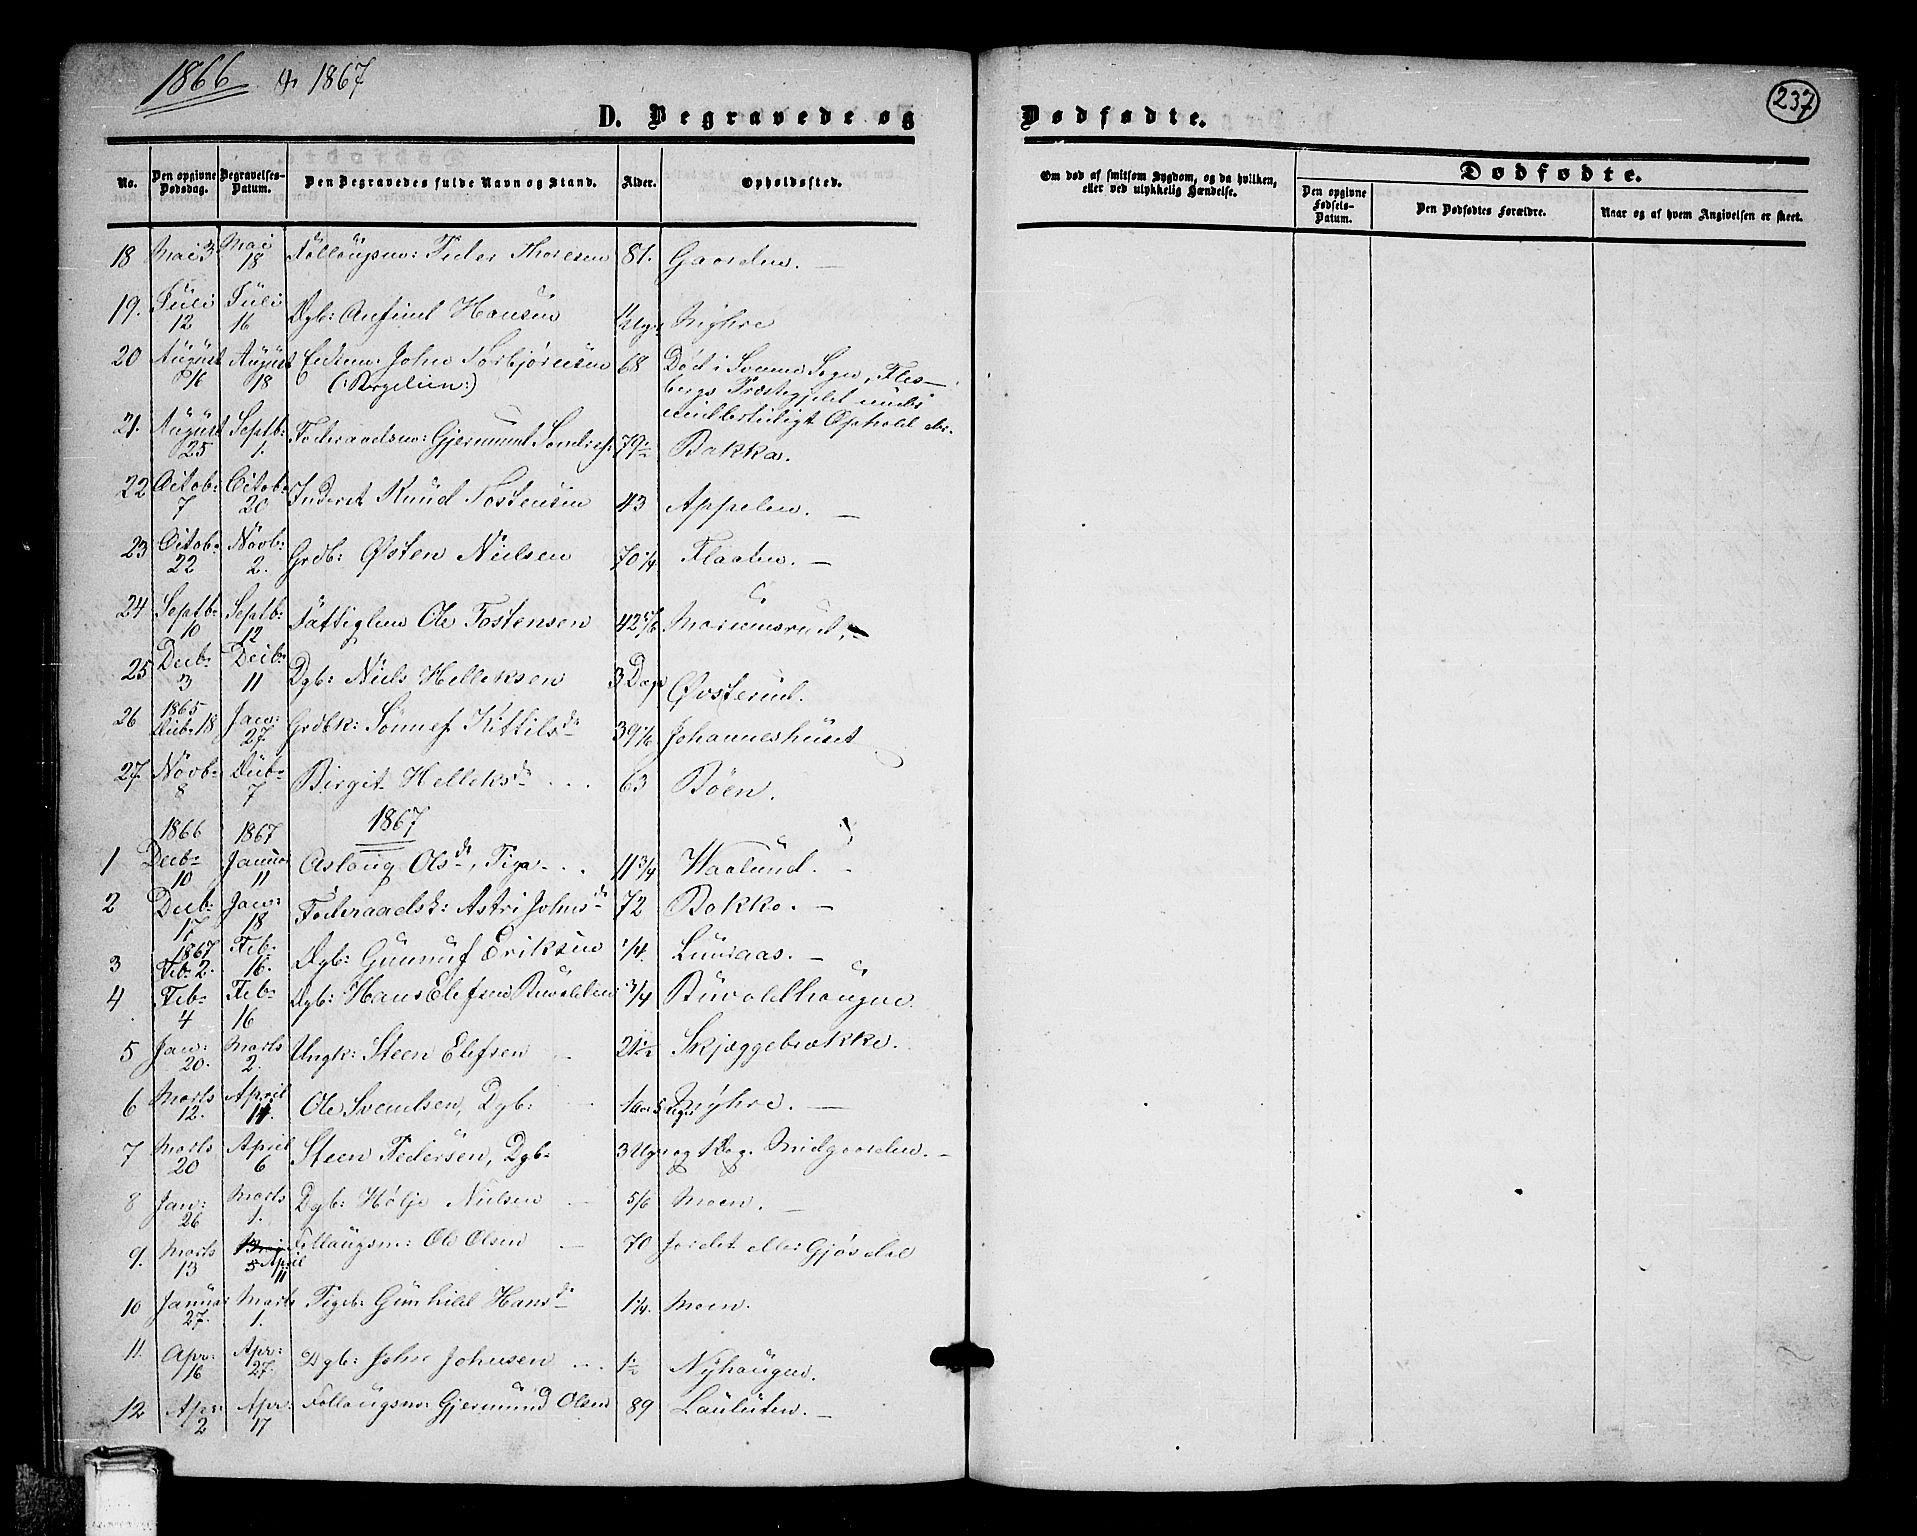 1866 & 1867
237
D. Begravede og Dødfødte.
No. Den opgivne Dødsdag. Begravelses-Datum. Den Begravedes fulde Navn og Stand. Alder. Opholdssted.
Om død af smitsom Sygdom, og da hvilken, eller ved ulykkelig Hændelse.
Dødfødte.
Den opgivne Fødsels-Datum. Den Dødfødtes Forældre. Naar og af hvem Angivelsen er skeet.
18 Mai 3 Mai 18 Peder Thoresen 81. Gaarden. —
19. Juli 12 Juli 16 Dgb: Anfind Hansen Myhre
20 August 16 August 18 John Torbjørnsen 68 Død i Svene Sogn, Fles-
bergs Præstegjeld under
midlertidigt Ophold der.
21. August 25 Septb: 1. Føderaadsm: Gjermund Sondres: 79½ Bakka.
22 Octob: 7 Octob: 20 Inderst Knud Tostensen 43 Appelen. —
23 Octob: 22 Novb: 2. Grdb: Østen Nielsen 70¼ Flaaten. —
24 Septb: 10 Septb: 12 Fattiglem Ole Tostensen 42 5/6
25 Decb: 3 Decb: 11 Dgb: Niels Helleksen 3 Dage Øvsterud.
26 1865 Decb: 18 Jan: 27. Grdbk: Sønnef Kittilsdr 39 Johanneshuset
27. Novb: 8 Decb: 7 Birgit Helleksdr 63 Bøen.
1866 1867 1867
1 Decb: 10 Januar 11 Aslaug Olsdr, Pige 11¾ Haalund.
2 Decb: 17 Jan: 18 Føderaadsk: Astri Johnsdr 72 Bakka. —
3 1867 Feb: 2. Feb: 16. Dgb: Gunnuf Eriksen ¼. Luraas. —
4 Feb: 4 Feb: 16 Dgb: Hans Elefsen Buvolden ¾ Buvoldhaugen.
5 Jan: 20. Marts 2. Ungk: Steen Elefsen 21½ Skjæggebrække.
6 Marts 12. April Ole Svendsen, Dgb: Myhre. —
7 Marts 20 April 6 Steen Pedersen, Dgb: 3 Ugr og 1 Dag. Midgaarden. —
8 Jan: 26 Marts 1. Dgb: Hølje Nielsen 5/6 Moen. —
9. Marts 13 April 11 Ole Olsen 70 Jordet eller Gjøsdal
10 Januar 27. Marts 1. Pigeb: Gunhild Hansdr 1¼. Moen.
11. Apr: 16 Apr: 27. Dgb: John Johnsen 1½ Nyhaugen.
12 Apr: 2 Apr: 17 Gjermund Olsen 89 Lauluten. —